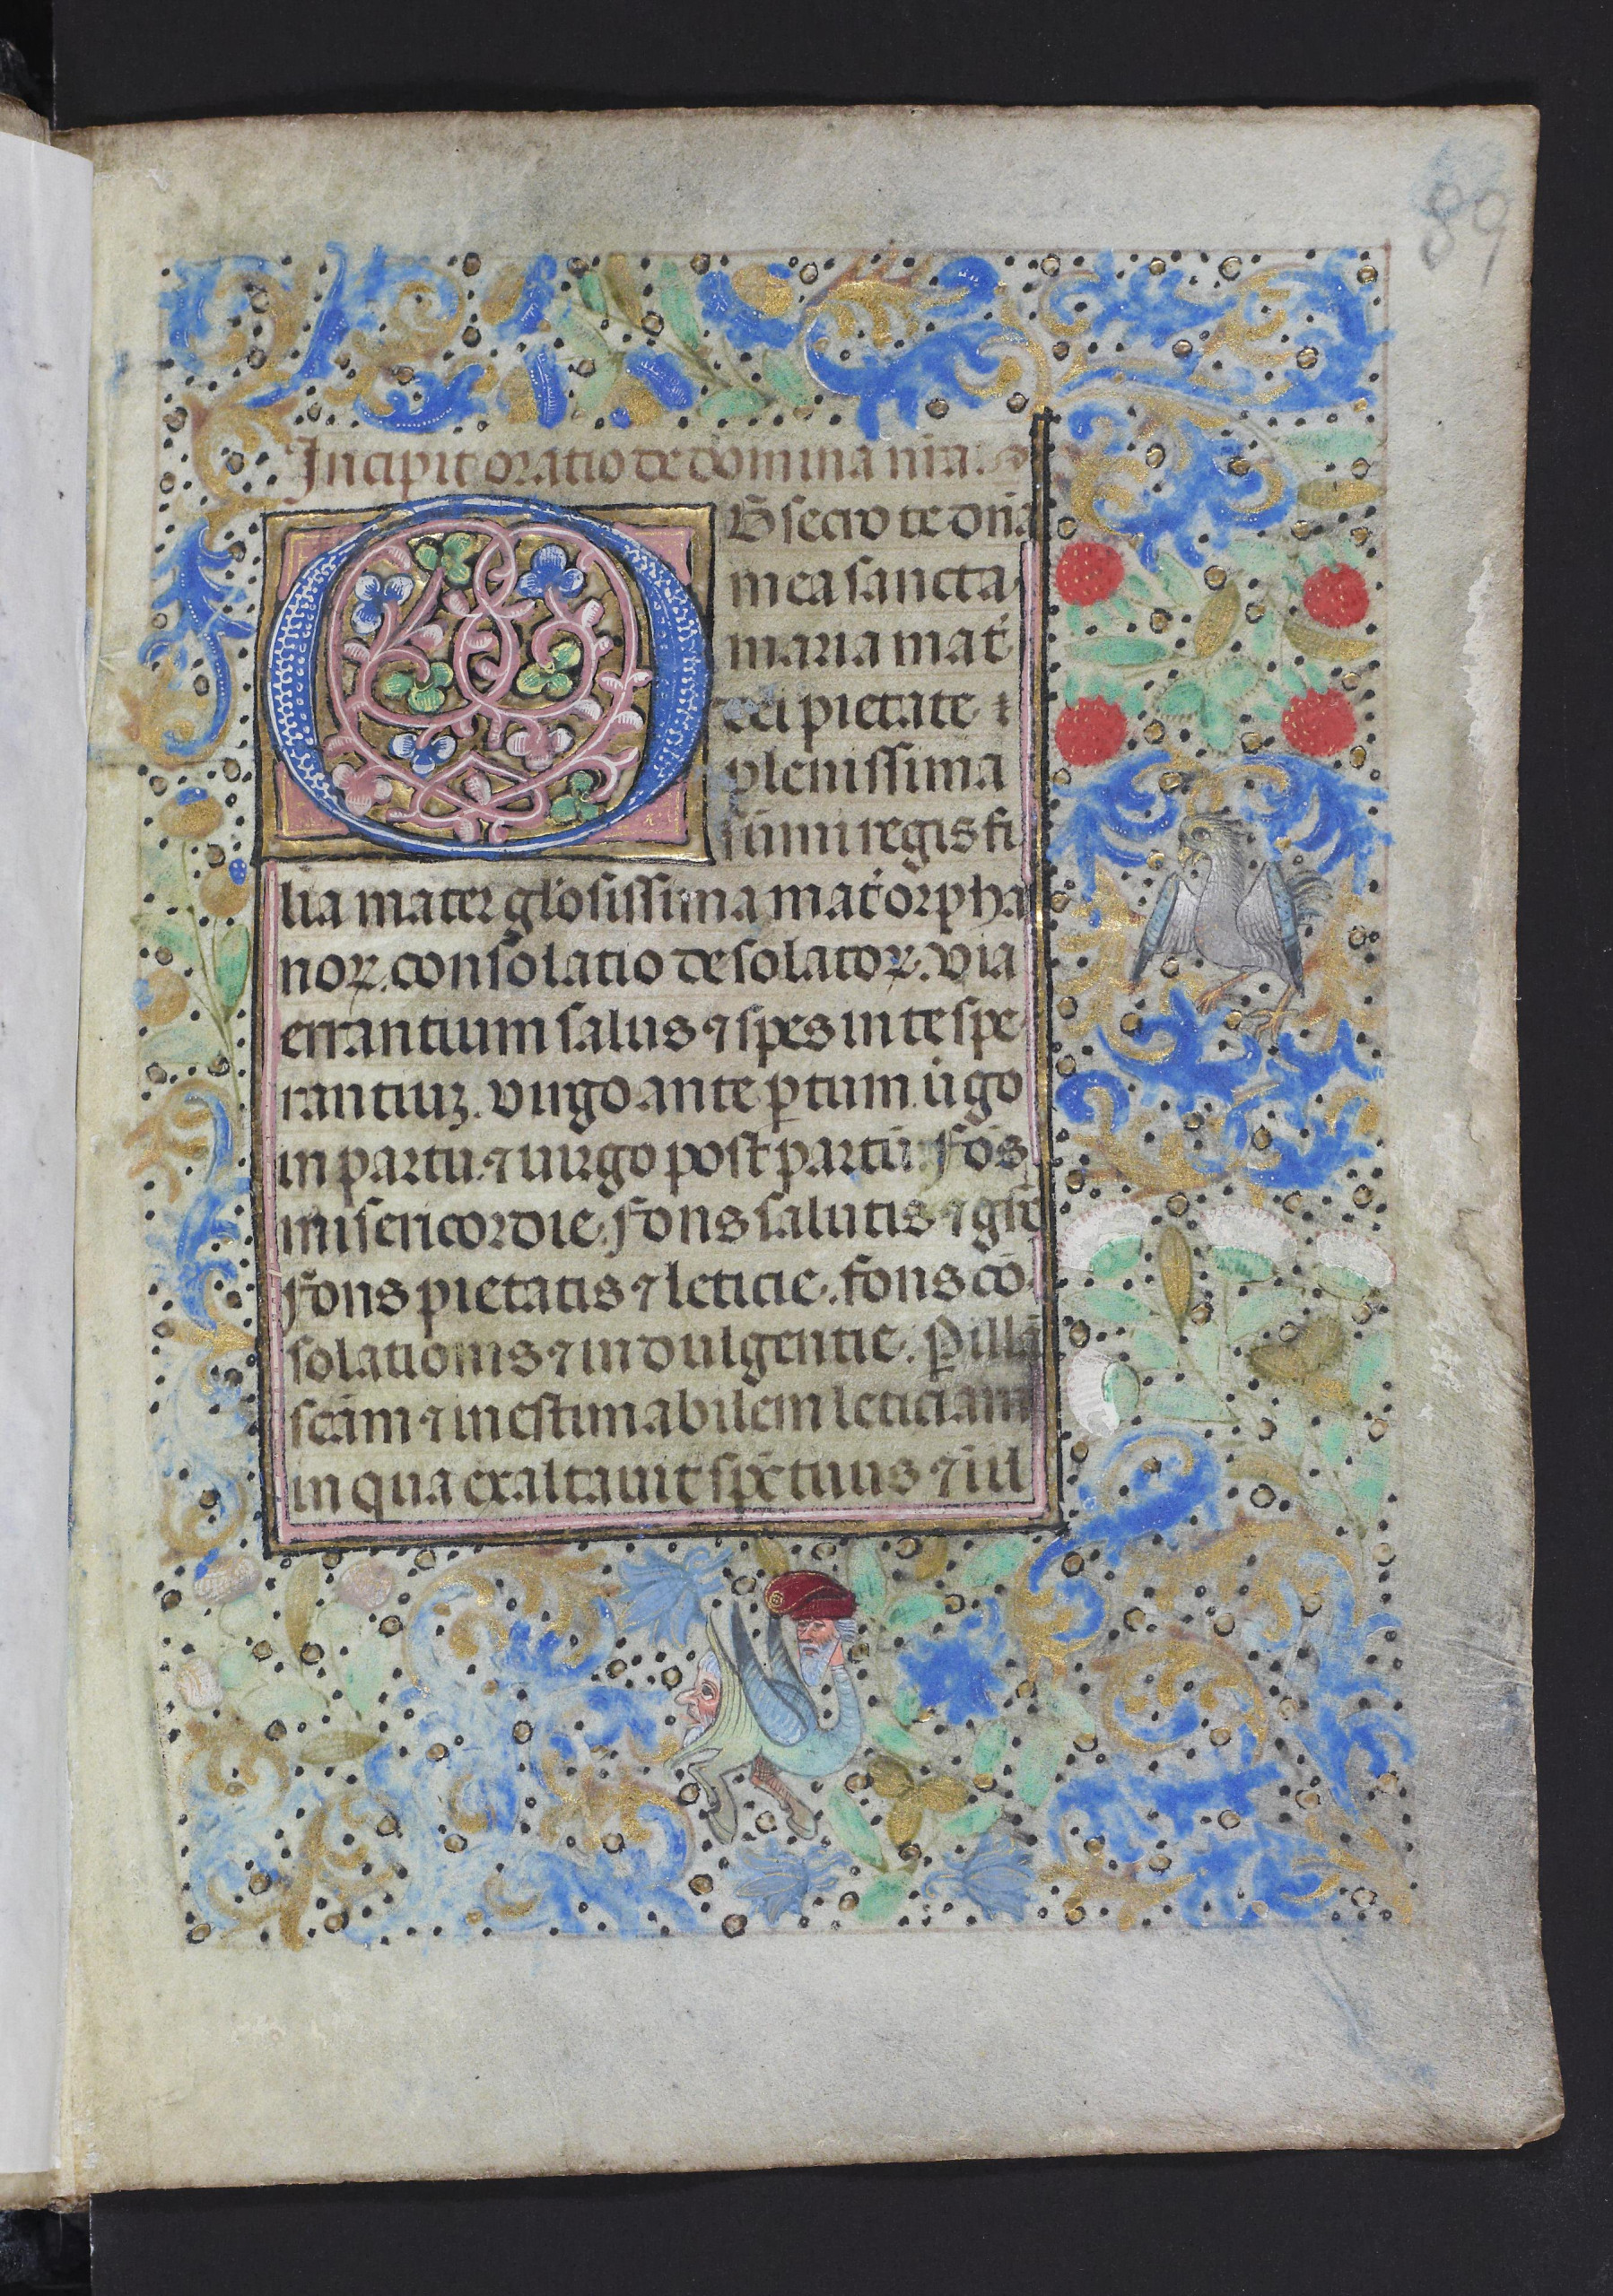 89
Incipit oratio de domina nr̄a.
OBsecro te dn̄a
mea sancta
maria mat̉
dei pietate ⁊
plenissima
sūmi regis fi
lia mater gl̉osissima mat̉ orpha
noꝝ. consolatio desolatoꝝ. via
errantium salus ⁊ spes in te spe
rantiuꝫ. virgo ante ꝑtum. ū̉go
in partu. ⁊ uirgo post partū. fōs
misericordie. fons salutis ⁊ gr̄e
fons pietatis ⁊ leticie. fons cō
solationis ⁊ indulgentie. Ꝑ illā
sc̄am ⁊ inestimabilem leticiam
in qua exaltauit sp̄c tuus ⁊ in il